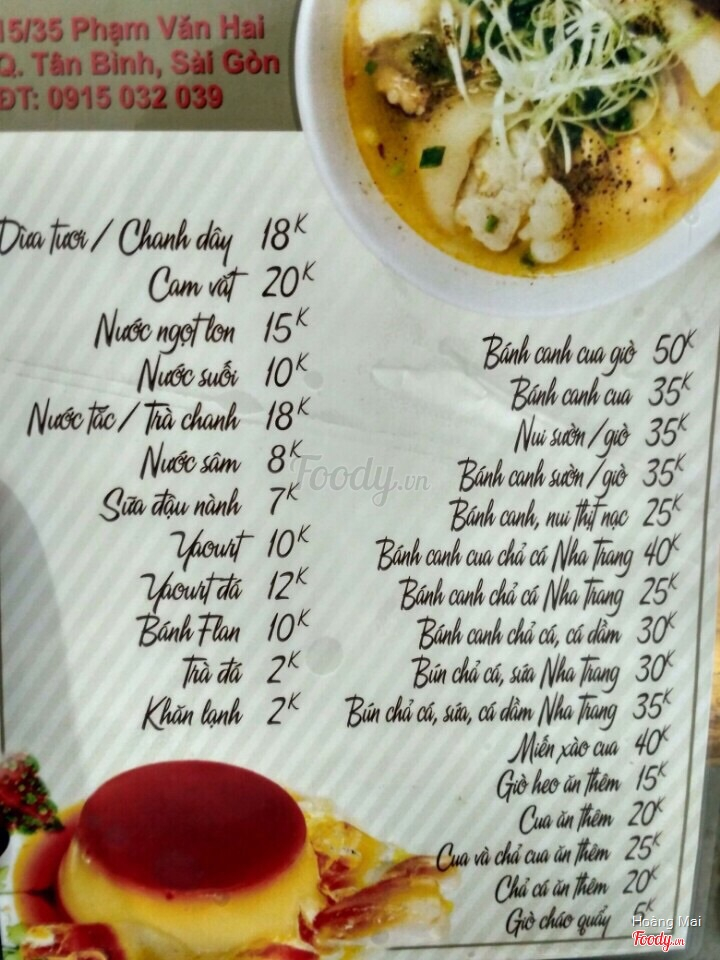 15/35 Phạm Văn Hai
Q. Tân Bình, Sài Gòn
ĐT: 0915 032 039
Dừa tươi / Chanh dây 18K
Cam vắt 20K
Nước ngọt lon 15K
Nước suối 10K
Nước tắc / Trà chanh 18K
Nước sâm 8K
Sữa đậu nành 7K
Yaourt 10K
Yaourt đá 12K
Bánh Flan 10K
Trà đá 2K
Khăn lạnh 2K
Bánh canh cua giò 50K
Bánh canh cua 35K
Nui sườn / giò 35K
Bánh canh sườn / giò 35K
Bánh canh, nui thịt nạc 25K
Bánh canh cua chả cá Nha Trang 40K
Bánh canh chả cá Nha Trang 25K
Bánh canh chả cá, cá dầm 30K
Bún chả cá, sứa Nha Trang 30K
Bún chả cá, sứa, cá dầm Nha Trang 35K
Miến xào cua 40K
Giò heo ăn thêm 15K
Cua ăn thêm 20K
Cua và chả cua ăn thêm 25K
Chả cá ăn thêm 20K
Giò cháo quẩy 5K
Foody.vn
Hoàng Mai
Foody.vn